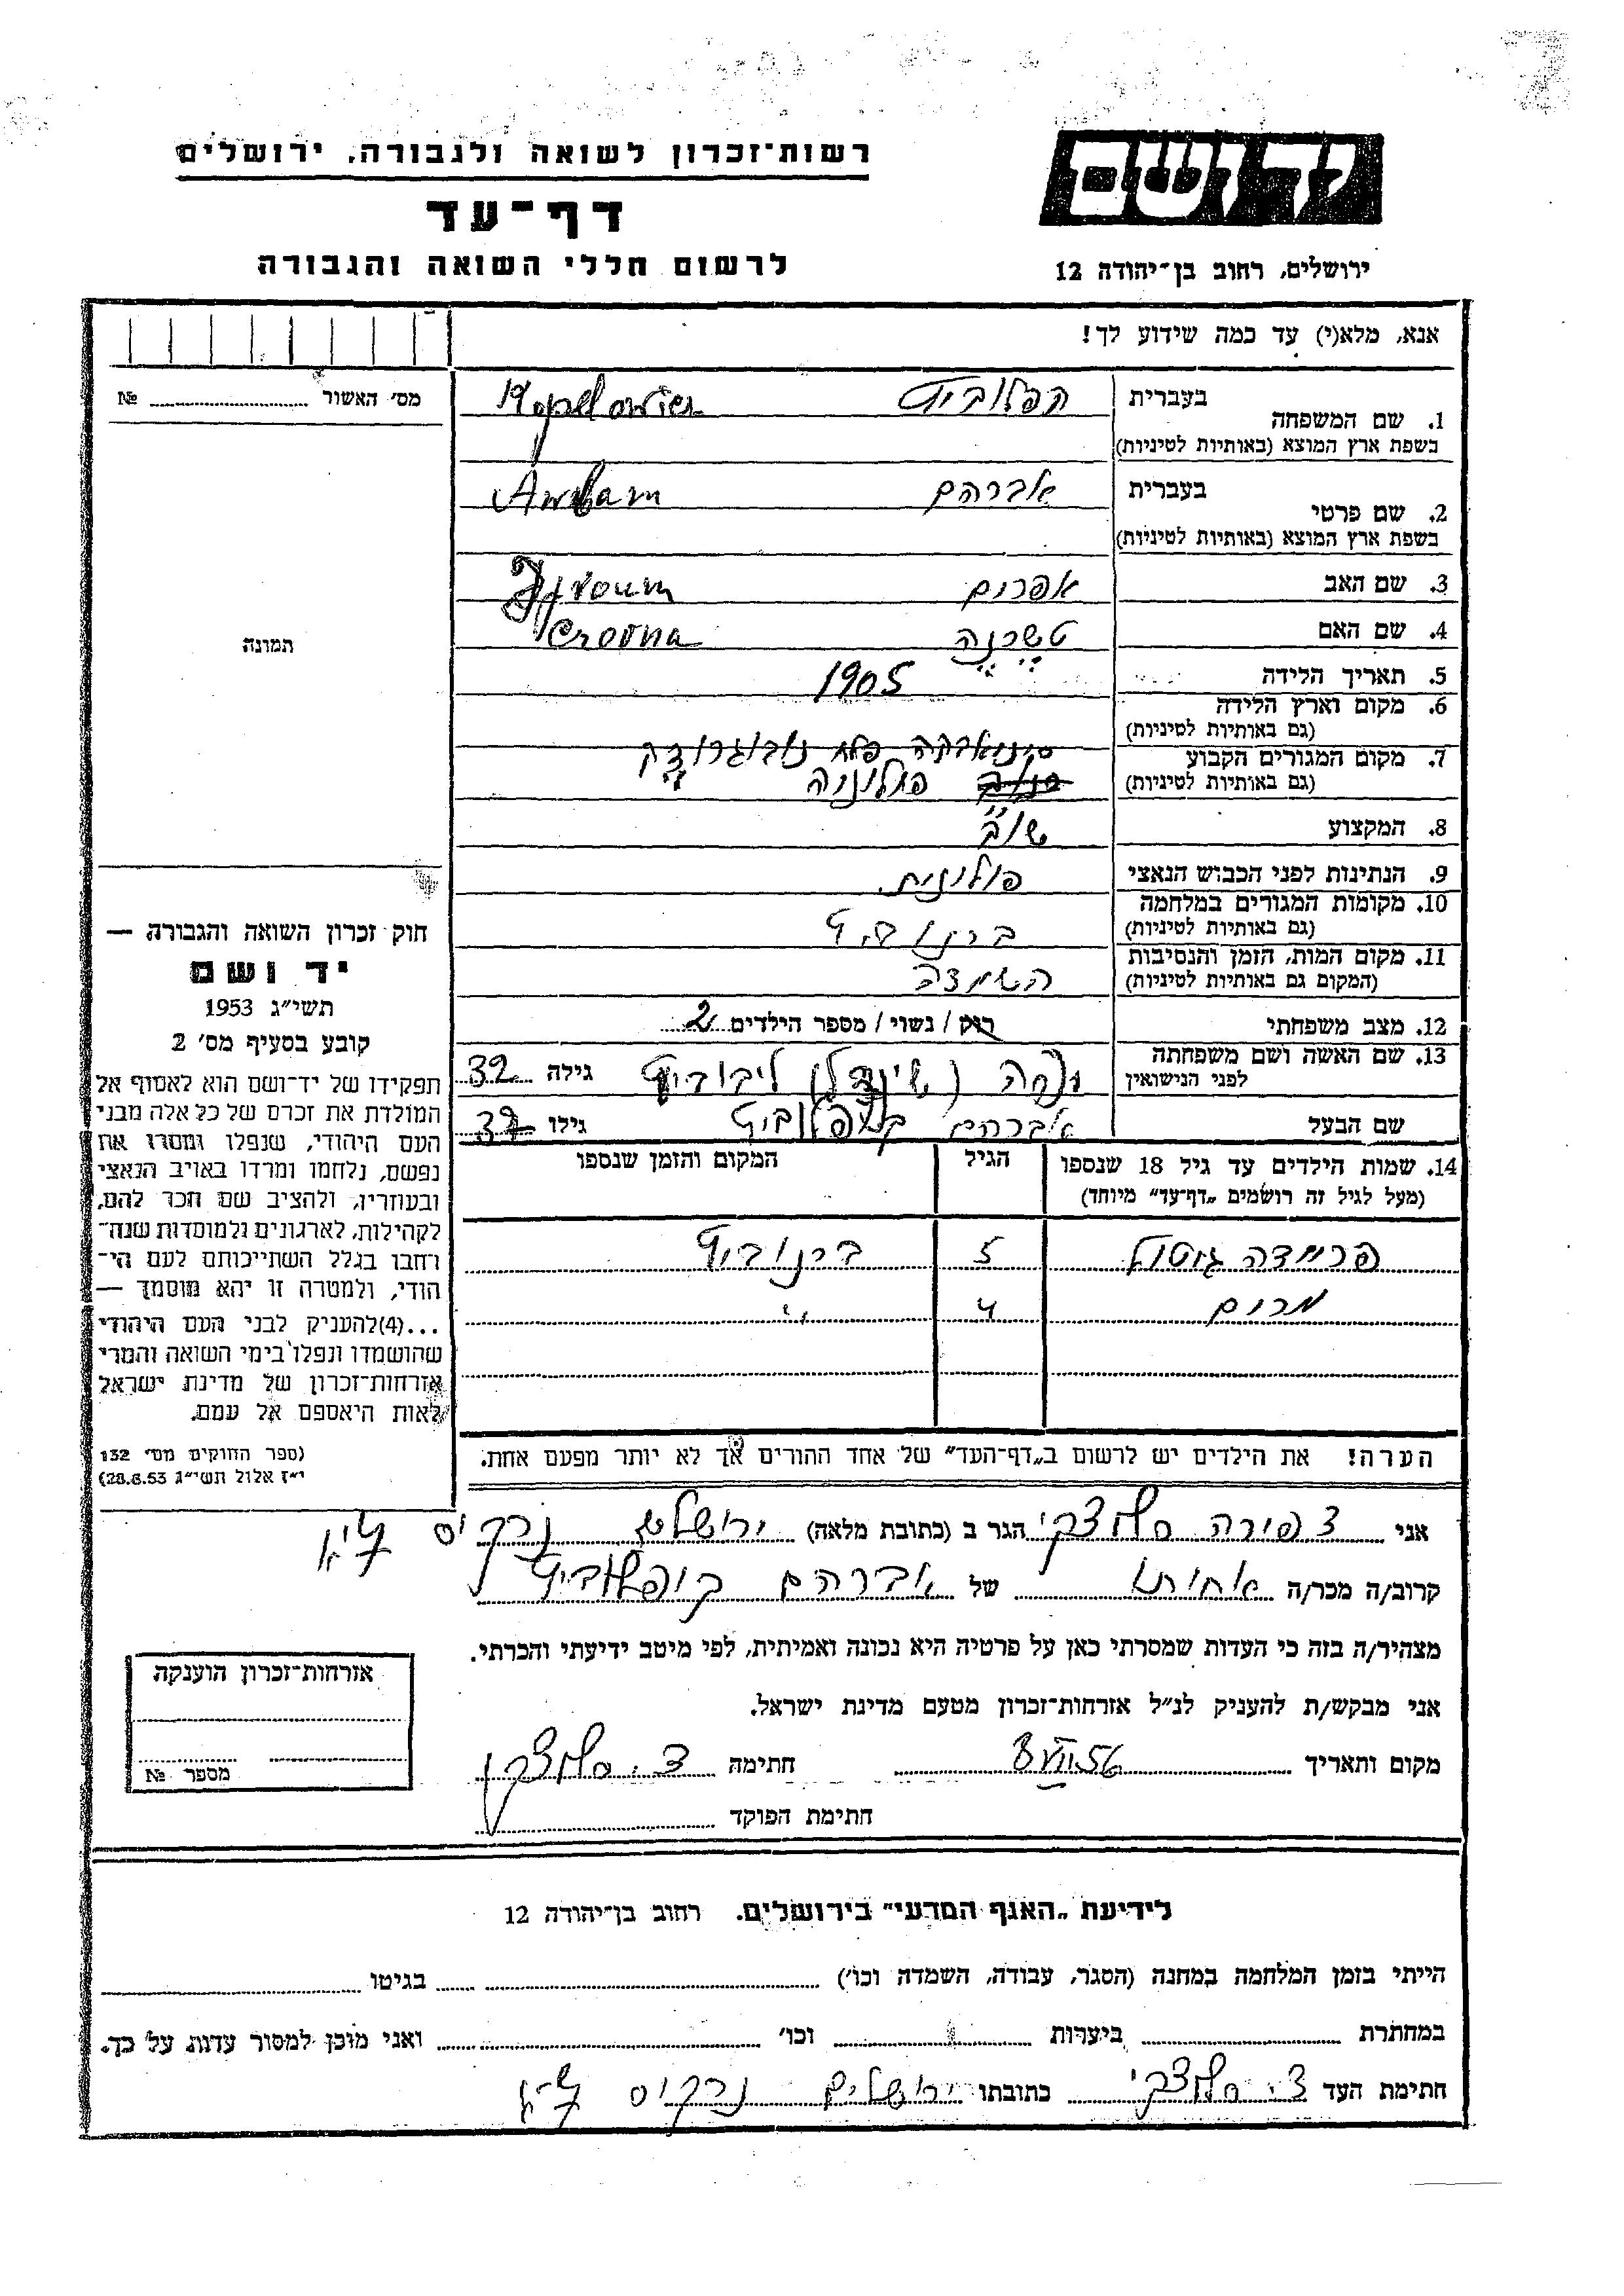 רשות־זכרון לשואה ולגבורה, ירושלים
יד ושם
דף־עד
לרשום חללי השואה והגבורה
ירושלים, רחוב בן־יהודה 12
אנא, מלא(י) עד כמה שידוע לך!
מס׳ האשור № 
תמונה
1. שם המשפחה
בעברית
קפלוביץ
Kopelowicz
בשפת ארץ המוצא (באותיות לטיניות)
2. שם פרטי
בעברית
אברהם
Awraham
בשפת ארץ המוצא (באותיות לטיניות)
3. שם האב אפרים
4. שם האם טשרנה
5. תאריך הלידה 1905
6. מקום וארץ הלידה
(גם באותיות לטיניות)
7. מקום המגורים הקבוע
פלך נובוגרודק
(גם באותיות לטיניות)
פולוניה
8. המקצוע שו״ב
9. הנתינות לפני הכבוש הנאצי פולונית.
10. מקומות המגורים במלחמה
(גם באותיות לטיניות)
11. מקום המות, הזמן והנסיבות
(המקום גם באותיות לטיניות)
השמדה
12. מצב משפחתי רוק / נשוי / מספר הילדים 2
13. שם האשה ושם משפחתה
לפני הנישואין
(שיינדל) ליבוביץ גילה 32
שם הבעל אברהם קפלוביץ גילו 37
14. שמות הילדים עד גיל 18 שנספו
(מעל לגיל זה רושמים „דף־עד” מיוחד)
הגיל
המקום והזמן שנספו
5
מרים 4 〃
הערה! את הילדים יש לרשום ב„דף־העד” של אחד ההורים אך לא יותר מפעם אחת.
חוק זכרון השואה והגבורה —
יד ושם
תשי״ג 1953
קובע בסעיף מס׳ 2
תפקידו של יד־ושם הוא לאסוף אל
המולדת את זכרם של כל אלה מבני
העם היהודי, שנפלו ומסרו את
נפשם, נלחמו ומרדו באויב הנאצי
ובעוזריו, ולהציב שם וזכר להם,
לקהילות, לארגונים ולמוסדות שנה־
רחבו בגלל השתייכותם לעם הי־
הודי, ולמטרה זו יהא מוסמך —
...(4)להעניק לבני העם היהודי
שהושמדו ונפלו בימי השואה והמרי
אזרחות־זכרון של מדינת ישראל
לאות היאספם אל עמם.
(ספר החוקים מס׳ 132
י״ז אלול תשי״ג 28.8.53)
אני צפורה סלוצקי הגר ב (כתובת מלאה) ירושלים נרקיס
קרוב/ה מכר/ה אחותו של אברהם קופלוביץ
מצהיר/ה בזה כי העדות שמסרתי כאן על פרטיה היא נכונה ואמיתית, לפי מיטב ידיעתי והכרתי.
אני מבקש/ת להעניק לנ״ל אזרחות־זכרון מטעם מדינת ישראל.
מקום ותאריך חתימה צ. סלוצקי
חתימת הפוקד
אזרחות־זכרון הוענקה
מספר №
לידיעת „האגף המדעי” בירושלים. רחוב בן־יהודה 12
הייתי בזמן המלחמה במחנה (הסגר, עבודה, השמדה וכו׳) בגיטו
במחתרת ביערות וכו׳ ואני מוכן למסור עדות על כך.
חתימת העד צ. סלוצקי כתובתו ירושלים נרקיס